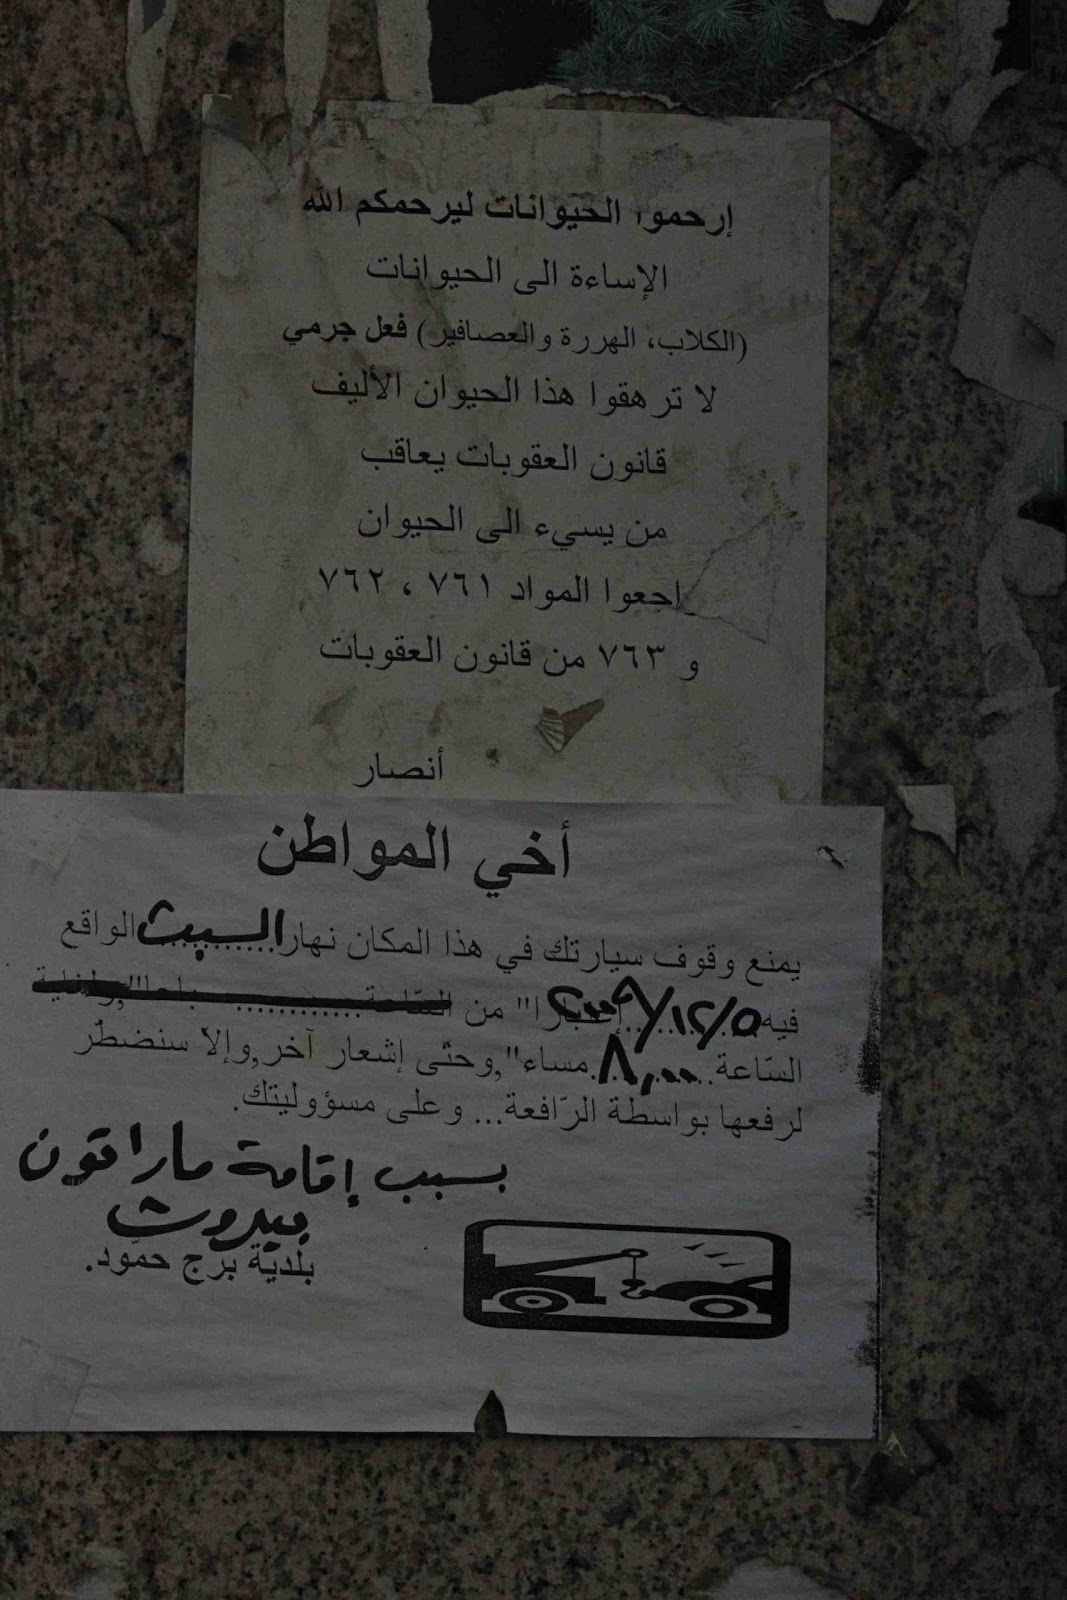 إرحموا الحيوانات ليرحمكم الله
الإساءة الى الحيوانات
(الكلاب، الهررة والعصافير) فعل جرمي
لا ترهقوا هذا الحيوان الأليف
قانون العقوبات يعاقب
من يسيء الى الحيوان
اجعوا المواد ٧٦١ ، ٧٦٢
و ٧٦٣ من قانون العقوبات
أنصار
أخي المواطن
يمنع وقوف سيارتك في هذا المكان نهار السبت الواقع
فيه ٥/١٢/ من السّاعة
السّاعة ٨,٠٠ مساء",وحتّى إشعار آخر,وإلاّ سنضطرّ
لرفعها بواسطة الرّافعة... وعلى مسؤوليتك.
بسبب إقامة ماراتون
بيروت
بلديّة برج حمّود.